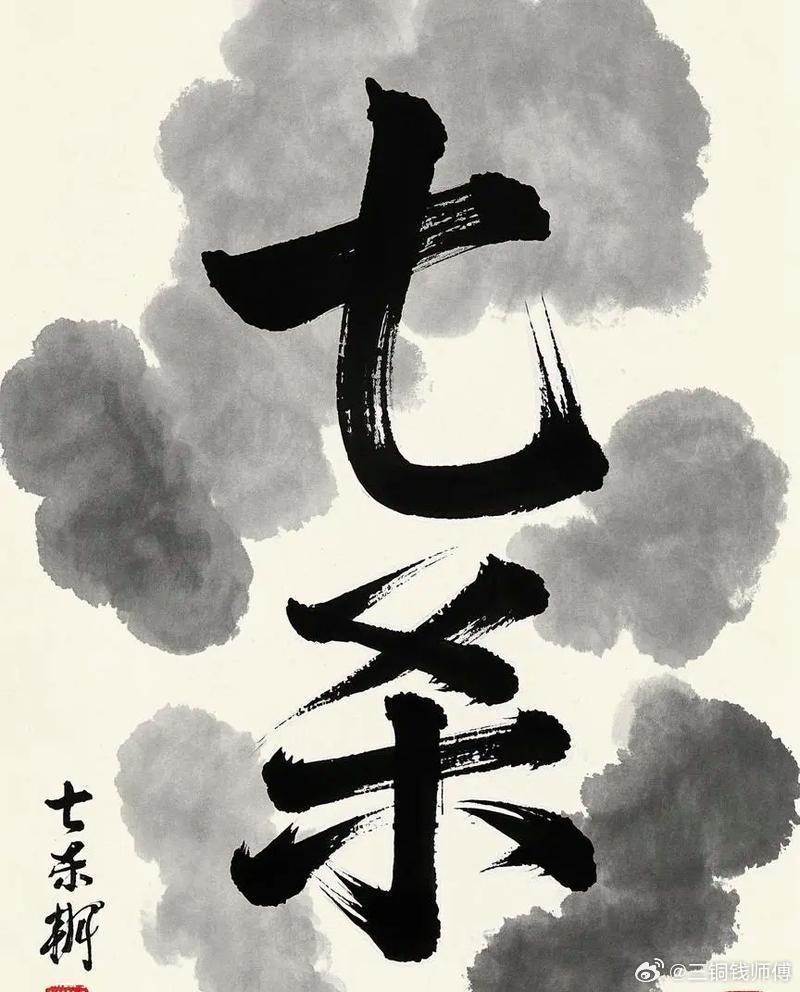 七杀
七杀
@三铜钱师傅